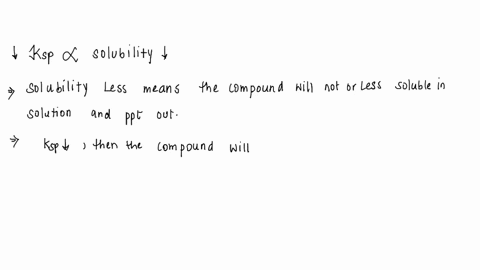 ↓ Ksp ∝ solubility ↓
⇒ Solubility Less means the compound will not or Less soluble in
solution and ppt out.
⇒ Ksp↓ , then the compound will